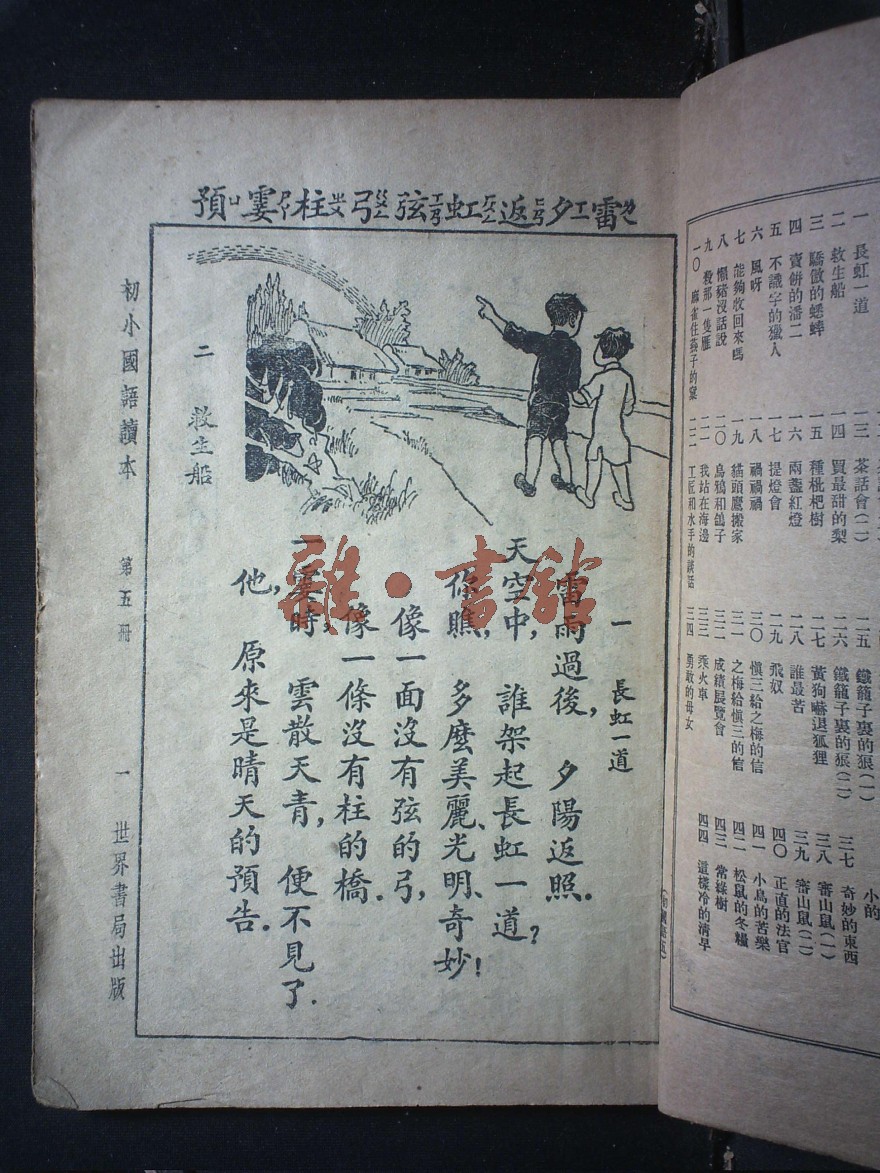 雷夕返虹弦弓柱霎預
一 長虹一道
雷雨過後,夕陽返照.
天空中,誰架起長虹一道?
你瞧,多麼美麗、光明、奇妙!
像一面沒有弦的弓,
像一條沒有柱的橋.
一霎時,雲散天青,便不見了.
他,原來是晴天的預告.
二 救生船
初小國語讀本 第五冊 一 世界書局出版
雜·書館
一 長虹一道
二 救生船
三 驕傲的蟋蟀
四 賣餅的潘二
五 不識字的獵人
六 風呀
七 能夠收回來嗎
八 懶豬沒話說
九 救那一隻雁
一〇 麻雀住燕子的窠
一三 茶話會(二)
一四 買最甜的梨
一五 種枇杷樹
一六 兩盞紅燈
一七 提燈會
一八 禍禍禍
一九 貓頭鷹搬家
二〇 烏鴉和鴿子
二一 我站在海邊
二二 工匠和水手的談話
二五 鐵籠子裏的狼(一)
二六 鐵籠子裏的狼(二)
二七 黃狗嚇退狐狸
二八 誰最苦
二九 飛奴
三〇 慎三給之梅的信
三一 之梅給慎三的信
三二 成績展覽會
三三 乘火車
三四 勇敢的母女
三七 奇妙的東西
三八 審山鼠(一)
三九 審山鼠(二)
四〇 正直的法官
四一 小鳥的苦樂
四二 松鼠的冬糧
四三 常綠樹
四四 這樣冷的清早